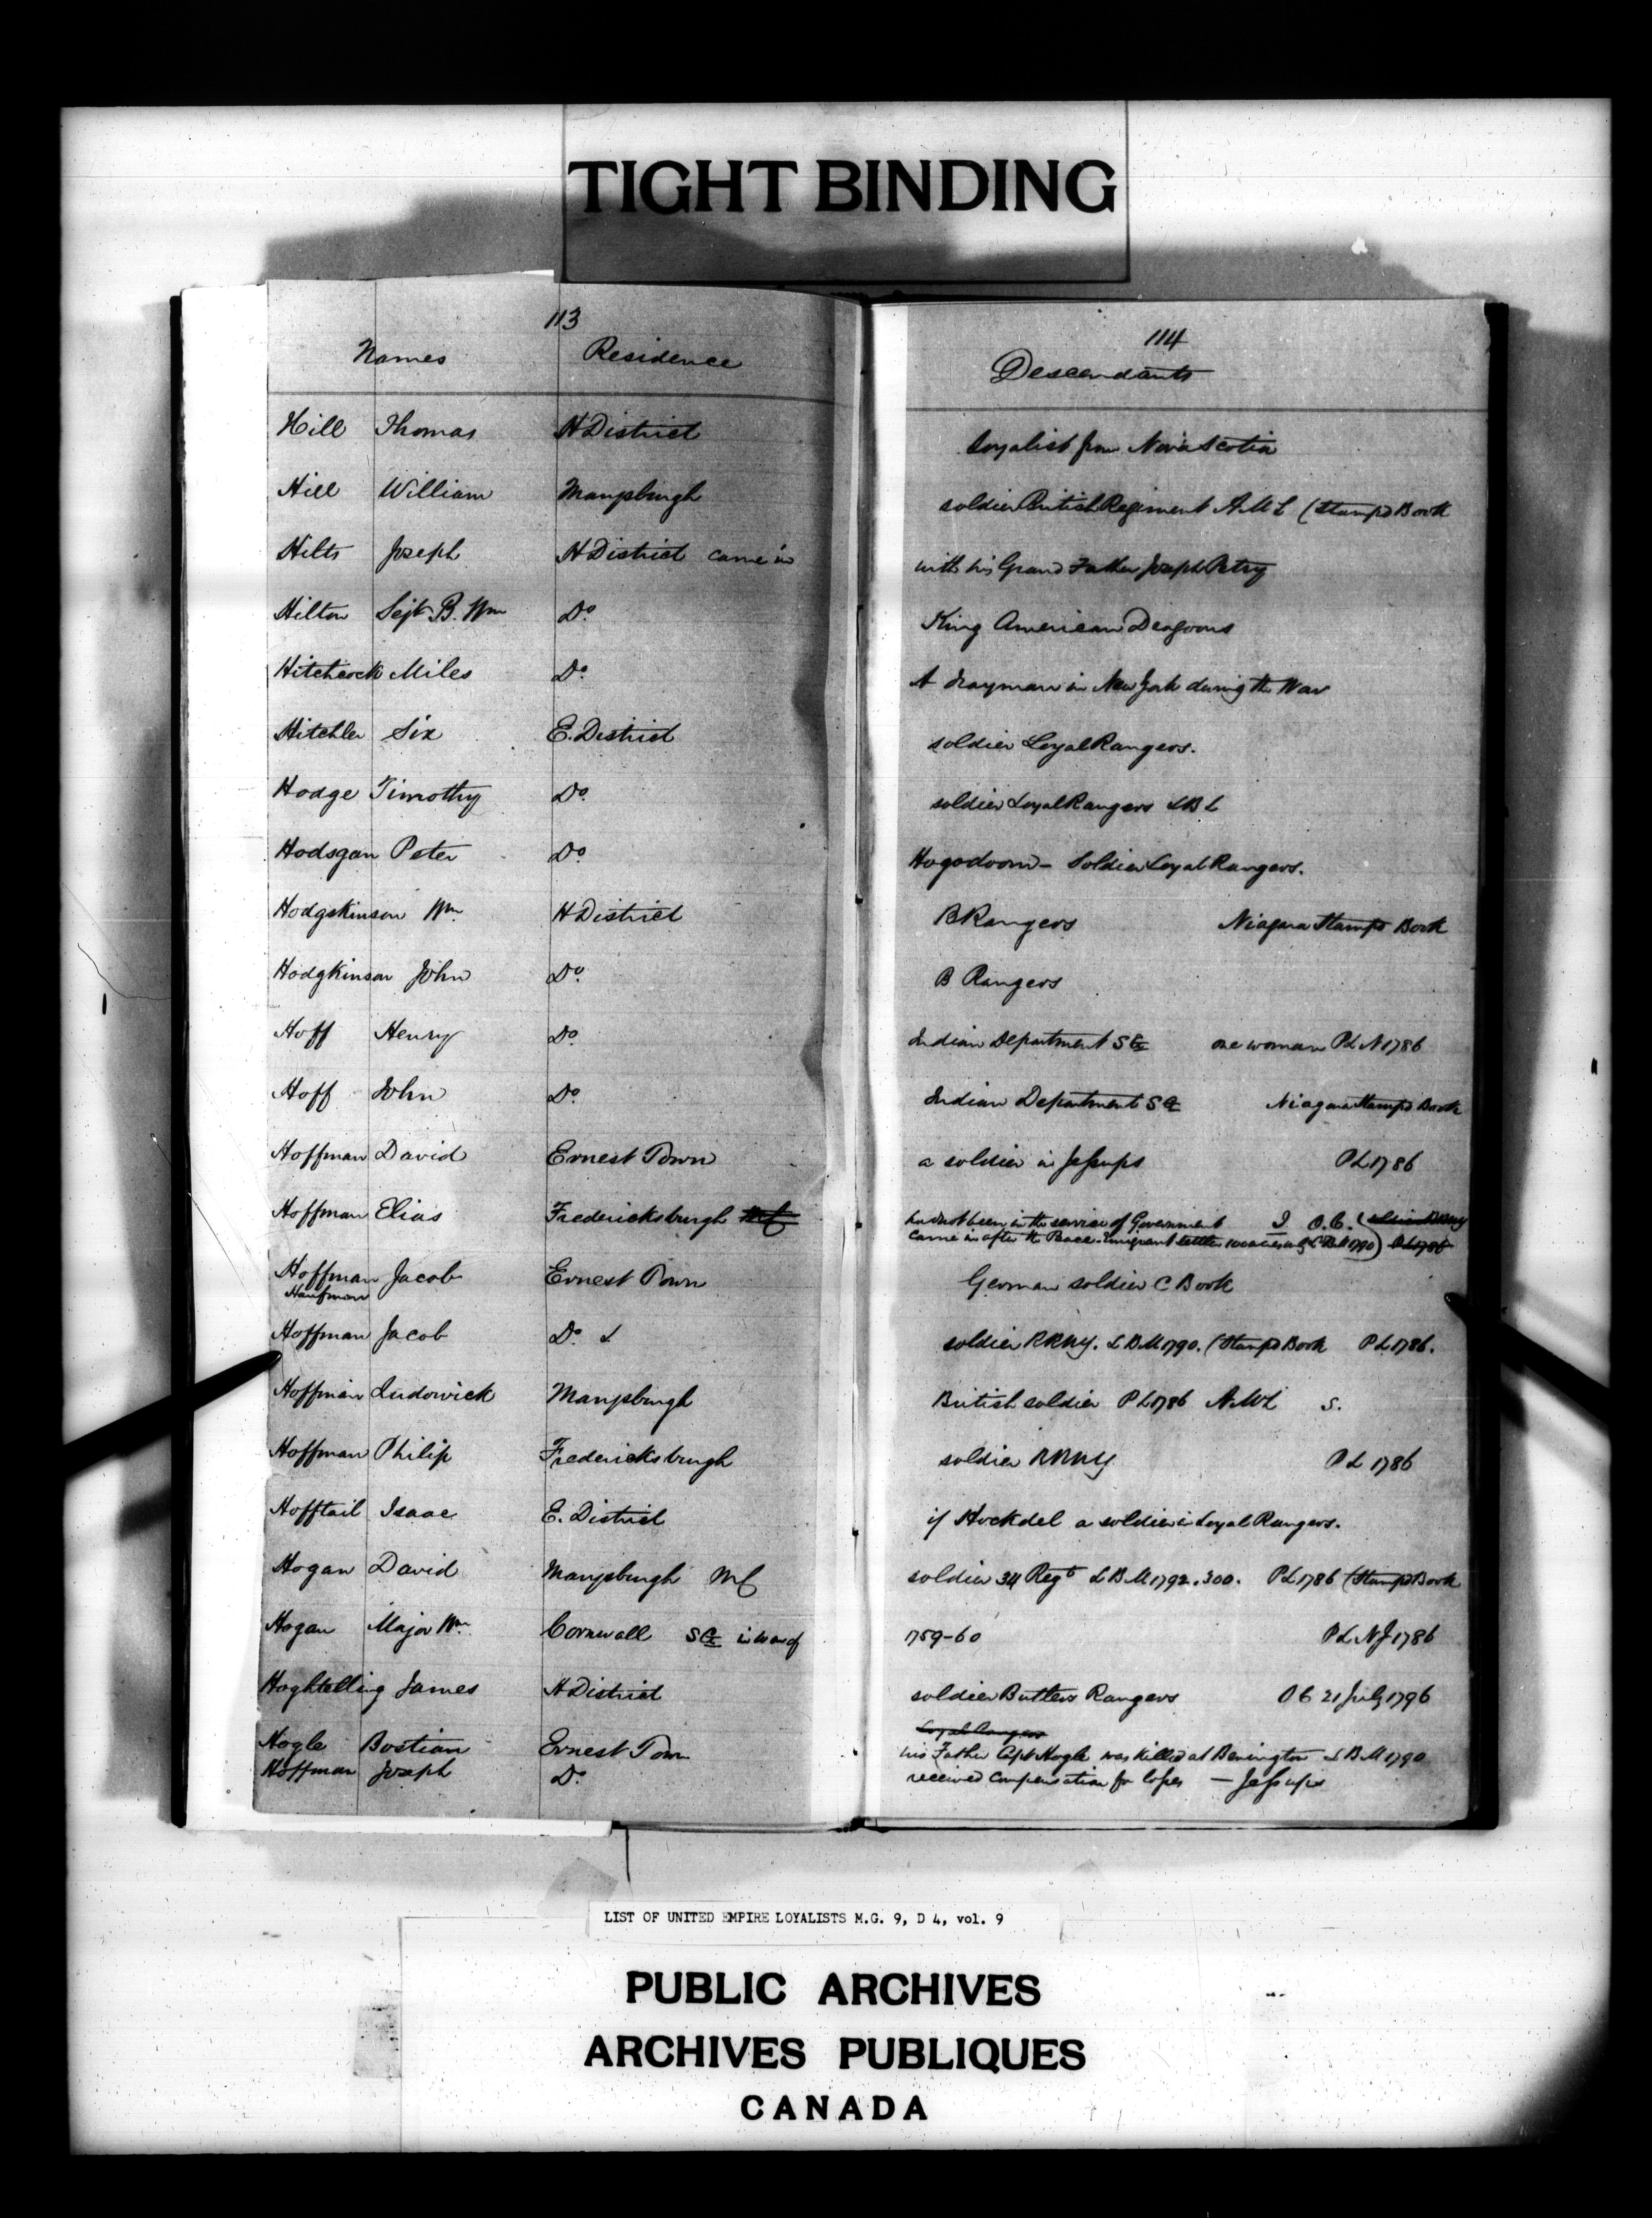 TIGHT BINDING
113
Names Residence
114
Descendants
Hill Thomas H District Loyalist from Nova Scotia
Hill William Marysburgh soldier British Regiment (Stamped Book
Hilts Joseph H District came in with his Grand Father Joseph Petry
Hilton Sejt B. Wm Do. King American Dragoons
Hitchcock Miles Do. A drayman in New York during the War
Hitchler Six E. District soldier Loyal Rangers.
Hodge Timothy Do. soldier Loyal Rangers LBL
Hodsgan Peter Do. Hogodoorn - Soldier Loyal Rangers.
Hodgskinson Wm H District B Rangers Niagara Stamped Book
Hodgkinson John Do. B Rangers
Hoff Henry Do. Indian Department SG one woman PLN 1786
Hoff John Do. Indian Department SG Niagara Stamped Book
Hoffman David Ernest Town a soldier in Jessups PL 1786
Hoffman Elias Fredericksburgh had not been in the service of Government I O.C.
came in after the Peace. Emigrant settler 100 acres LBM 1790) PL 1786
Hoffman Jacob Ernest Town German soldier C Book
Haufman
Hoffman Jacob Do. L soldier RRNY. LBM 1790. (Stamped Book PL 1786.
Hoffman Ludowick Marysburgh British soldier PL 1786 S.
Hoffman Philip Fredericksburgh soldier RRNY PL 1786
Hofftail Isaac E. District if Hockdel a soldier in Loyal Rangers.
Hogan David Marysburgh MC soldier 34 Regt LBM 1792. 300. PL 1786 (Stamped Book
Hogan Major Wm Cornwall SG in War of 1759-60 PLNJ 1786
Hoghtelling James H District soldier Butlers Rangers OC 21 July 1796
Loyal Rangers
Hogle Bostian Ernest Town his Father Capt Hogle was killed at Benington LBM 1790
Hoffman Joseph Do. received compensation for losses — Jessups
LIST OF UNITED EMPIRE LOYALISTS M.G. 9, D 4, vol. 9
PUBLIC ARCHIVES
ARCHIVES PUBLIQUES
CANADA